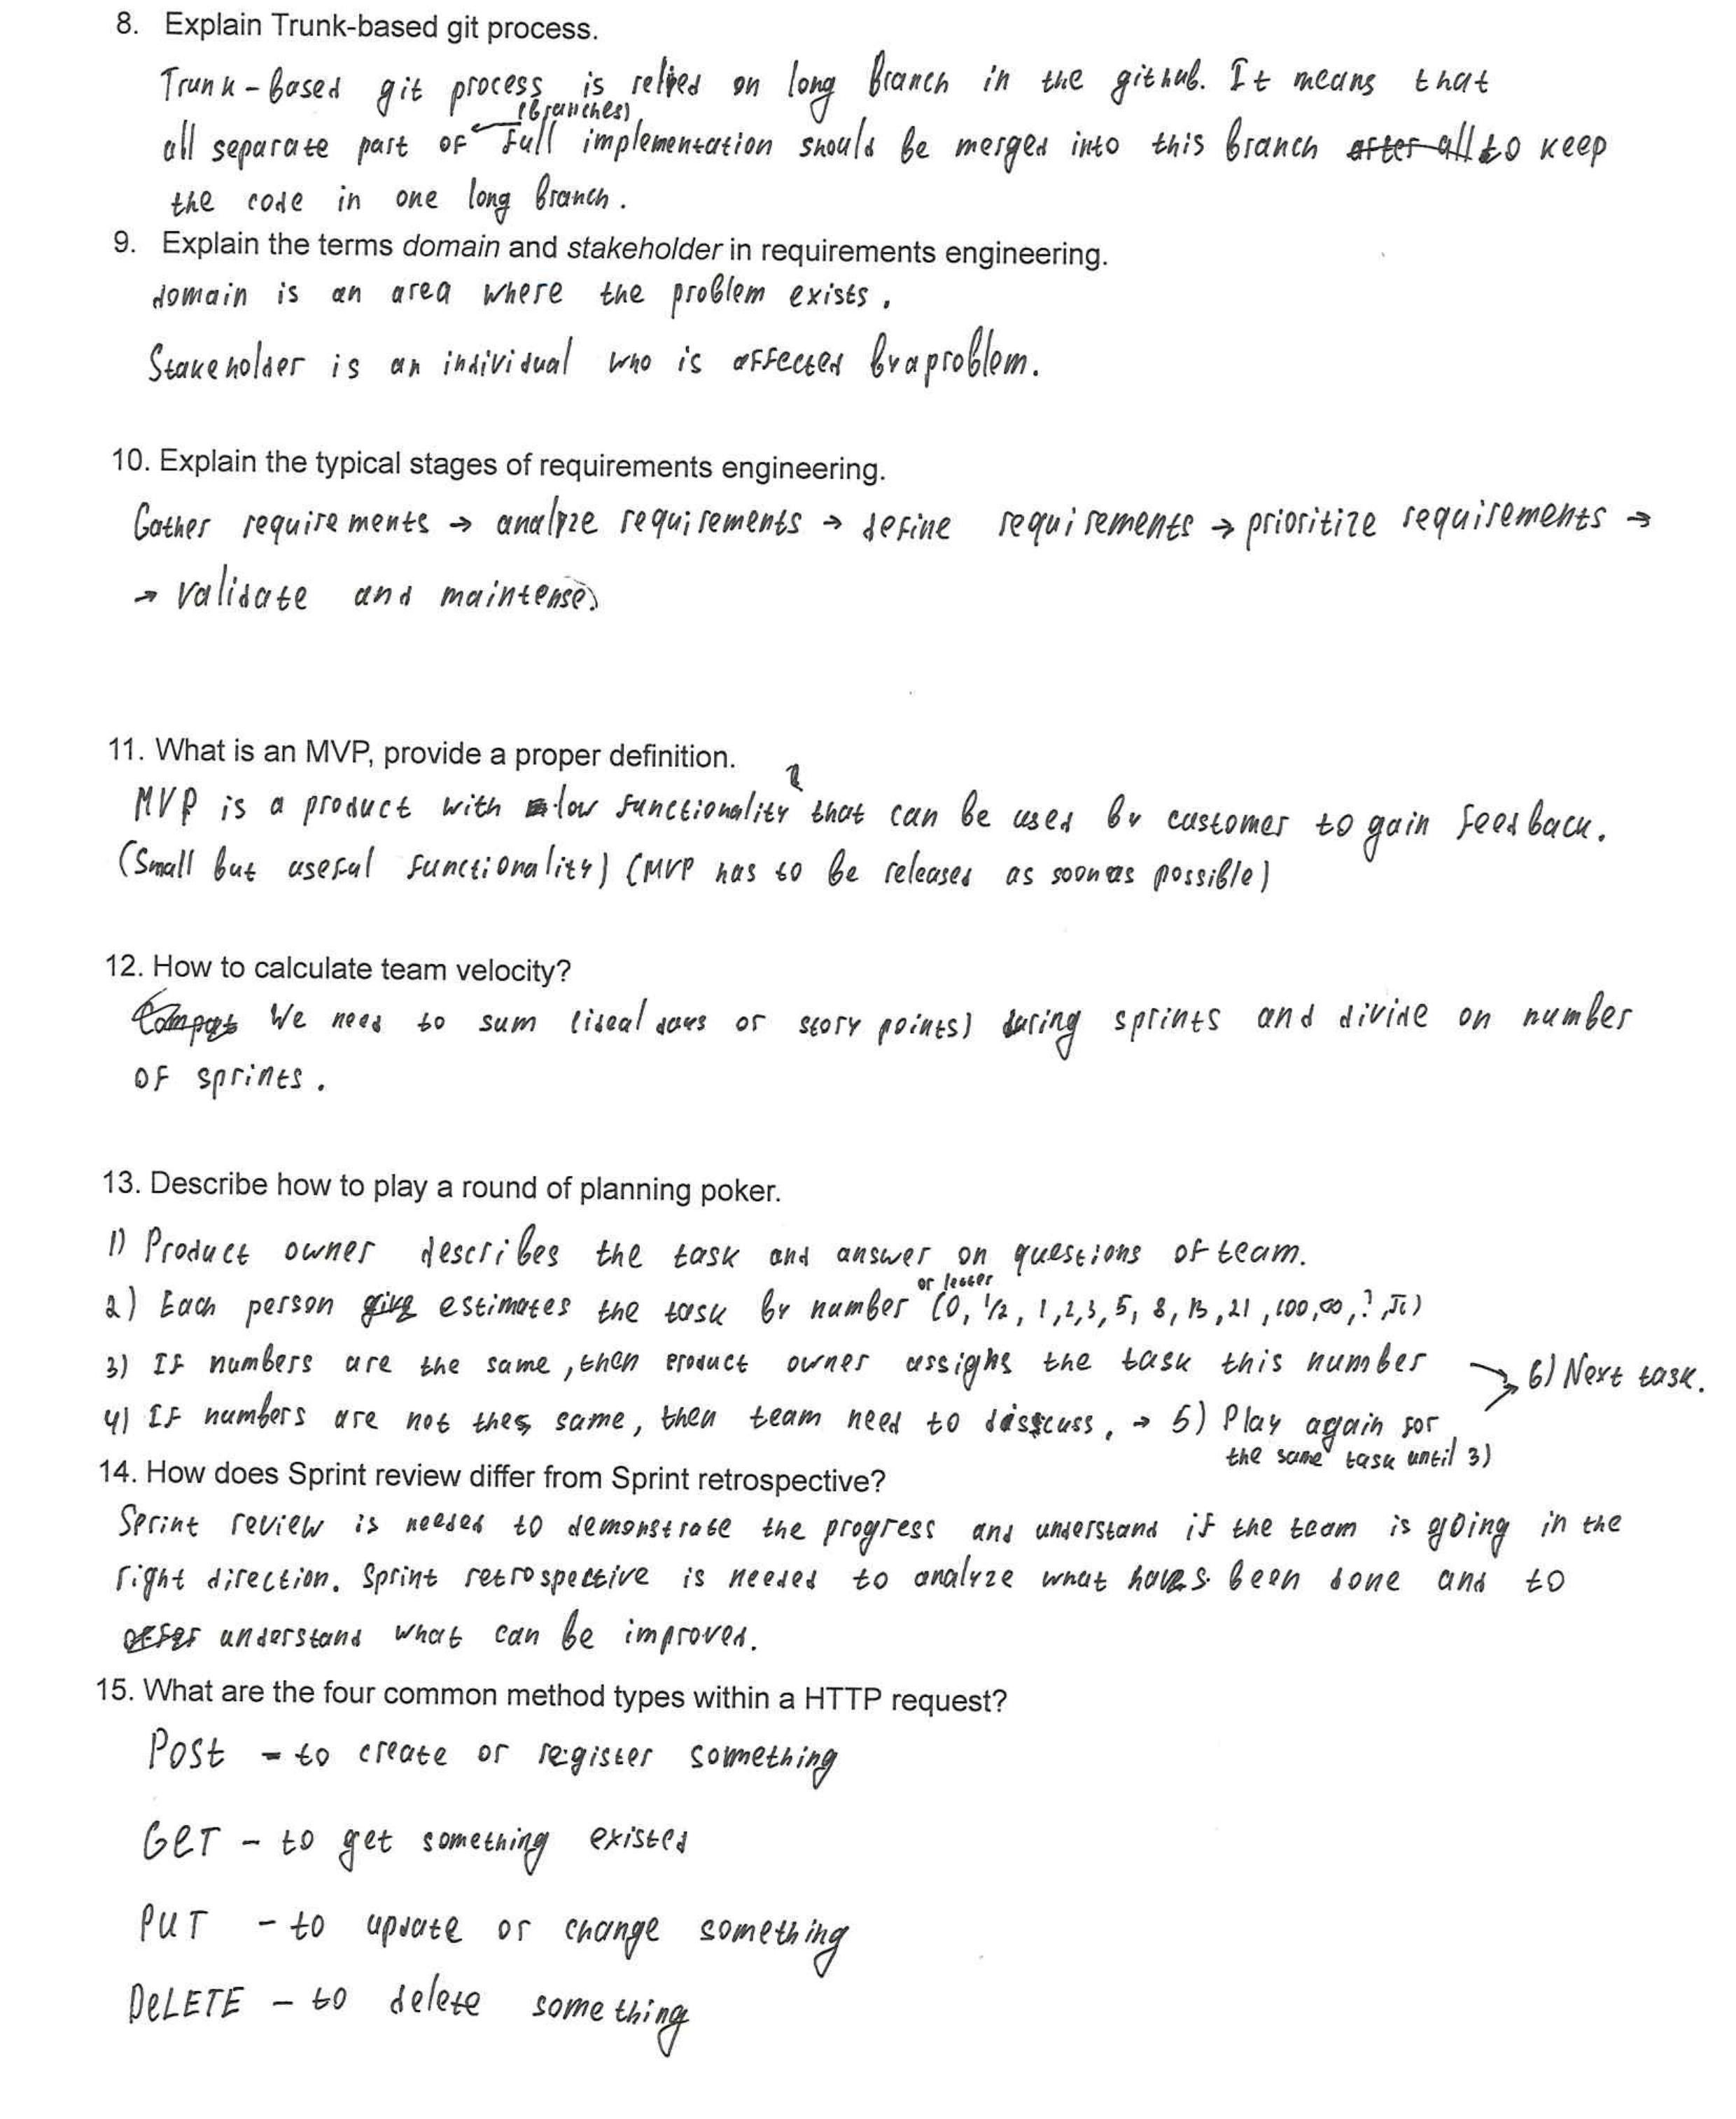 8. Explain Trunk-based git process.
Trunk-based git process is relied on long branch in the github. It means that
(branches)
all separate part of full implementation should be merged into this branch after all to keep
the code in one long branch.
9. Explain the terms domain and stakeholder in requirements engineering.
domain is an area where the problem exists.
Stakeholder is an individual who is affected by a problem.
10. Explain the typical stages of requirements engineering.
Gather requirements → analyze requirements → define requirements → prioritize requirements →
→ validate and maintense)
11. What is an MVP, provide a proper definition.
MVP is a product with low functionality that can be used by customer to gain feedback.
(Small but useful functionality) (MVP has to be released as soon as possible)
12. How to calculate team velocity?
We need to sum (ideal days or story points) during sprints and divide on number
of sprints.
13. Describe how to play a round of planning poker.
1) Product owner describes the task and answer on questions of team.
or letter
2) Each person give estimates the task by number (0, 1/2, 1, 2, 3, 5, 8, 13, 21, 100, ∞, ?, π)
3) If numbers are the same, then product owner assighs the task this number
6) Next task.
4) If numbers are not the same, then team need to disscuss, → 5) Play again for
the same task until 3)
14. How does Sprint review differ from Sprint retrospective?
Sprint review is needed to demonstrate the progress and understand if the team is going in the
right direction. Sprint retrospective is needed to analyze what has been done and to
offer understand what can be improved.
15. What are the four common method types within a HTTP request?
Post - to create or register something
GET - to get something existed
PUT - to update or change something
DELETE - to delete something